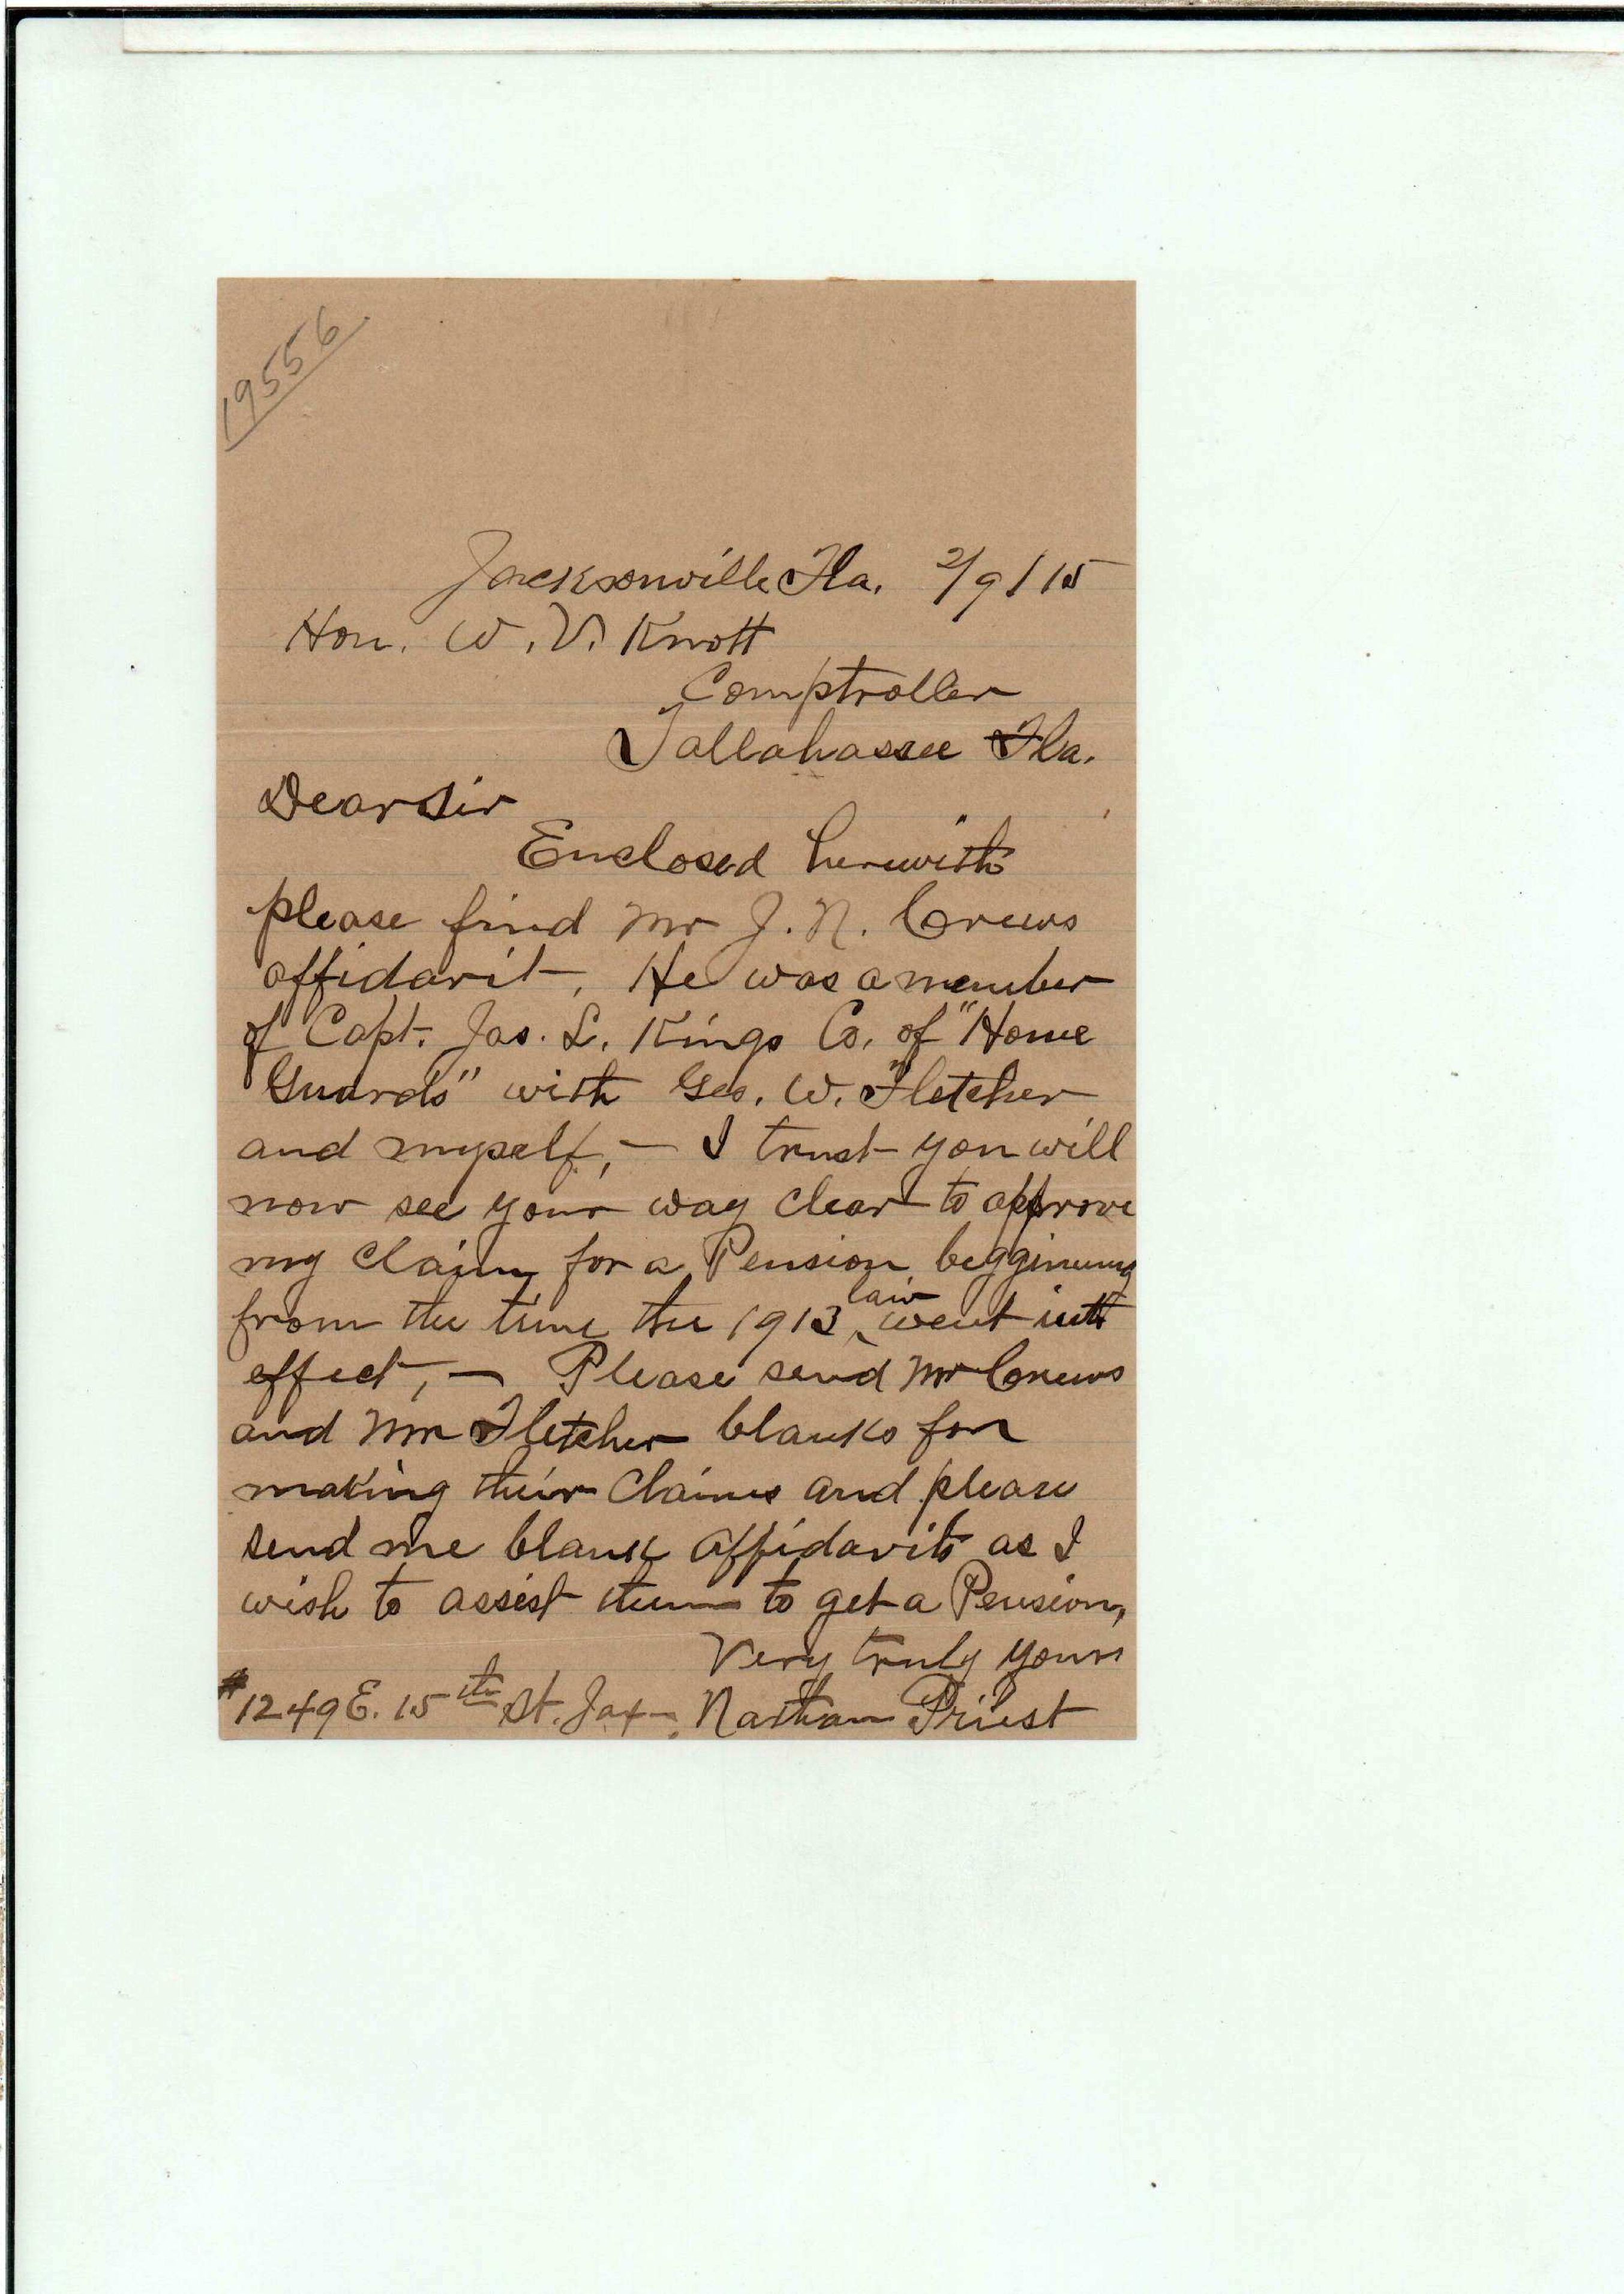 19556
Jacksonville Fla. 2/9/15
Hon. W. V. Knott
Comptroller
Tallahassee Fla.
Dear Sir
Enclosed herewith
please find Mr J. N. Crews
affidavit, He was a member
of Capt. Jas. L. Kings Co. of "Home
Guards" with Geo. W. Fletcher
and myself, — I trust you will
now see your way clear to approve
my claim for a Pension beggining
from the time the 1913 law went into
effect, — Please send Mr Crews
and Mr Fletcher blanks for
making their claims and please
send me blank affidavits as I
wish to assist them to get a Pension,
Very truly yours
#1249 E. 15th St. Jax. Nathan Priest